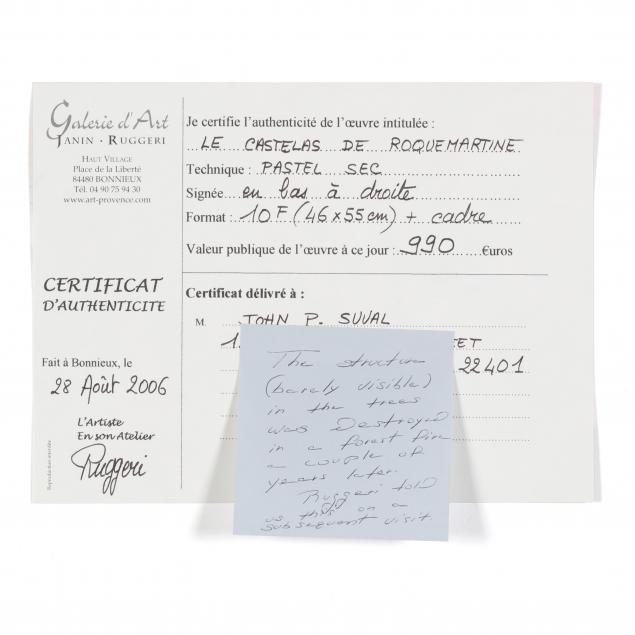 Galerie d'Art
JANIN · RUGGERI
HAUT VILLAGE
Place de la Liberté
84480 BONNIEUX
Tél. 04 90 75 94 30
www.art-provence.com
CERTIFICAT
D'AUTHENTICITE
Fait à Bonnieux, le
28 Août 2006
L'Artiste
En son Atelier
Ruggeri
Reproduction interdite
Je certifie l'authenticité de l'œuvre intitulée :
LE CASTELAS DE ROQUEMARTINE
Technique : PASTEL SEC
Signée en bas à droite
Format : 10 F (46 x 55 cm) + cadre
Valeur publique de l'œuvre à ce jour : 990 €uros
Certificat délivré à :
M. JOHN P. SUVAL
22401
The structure
(barely visible)
in the trees
was Destroyed
in a forest fire
a couple of
years later.
Ruggeri told
us this on a
subsequent visit.